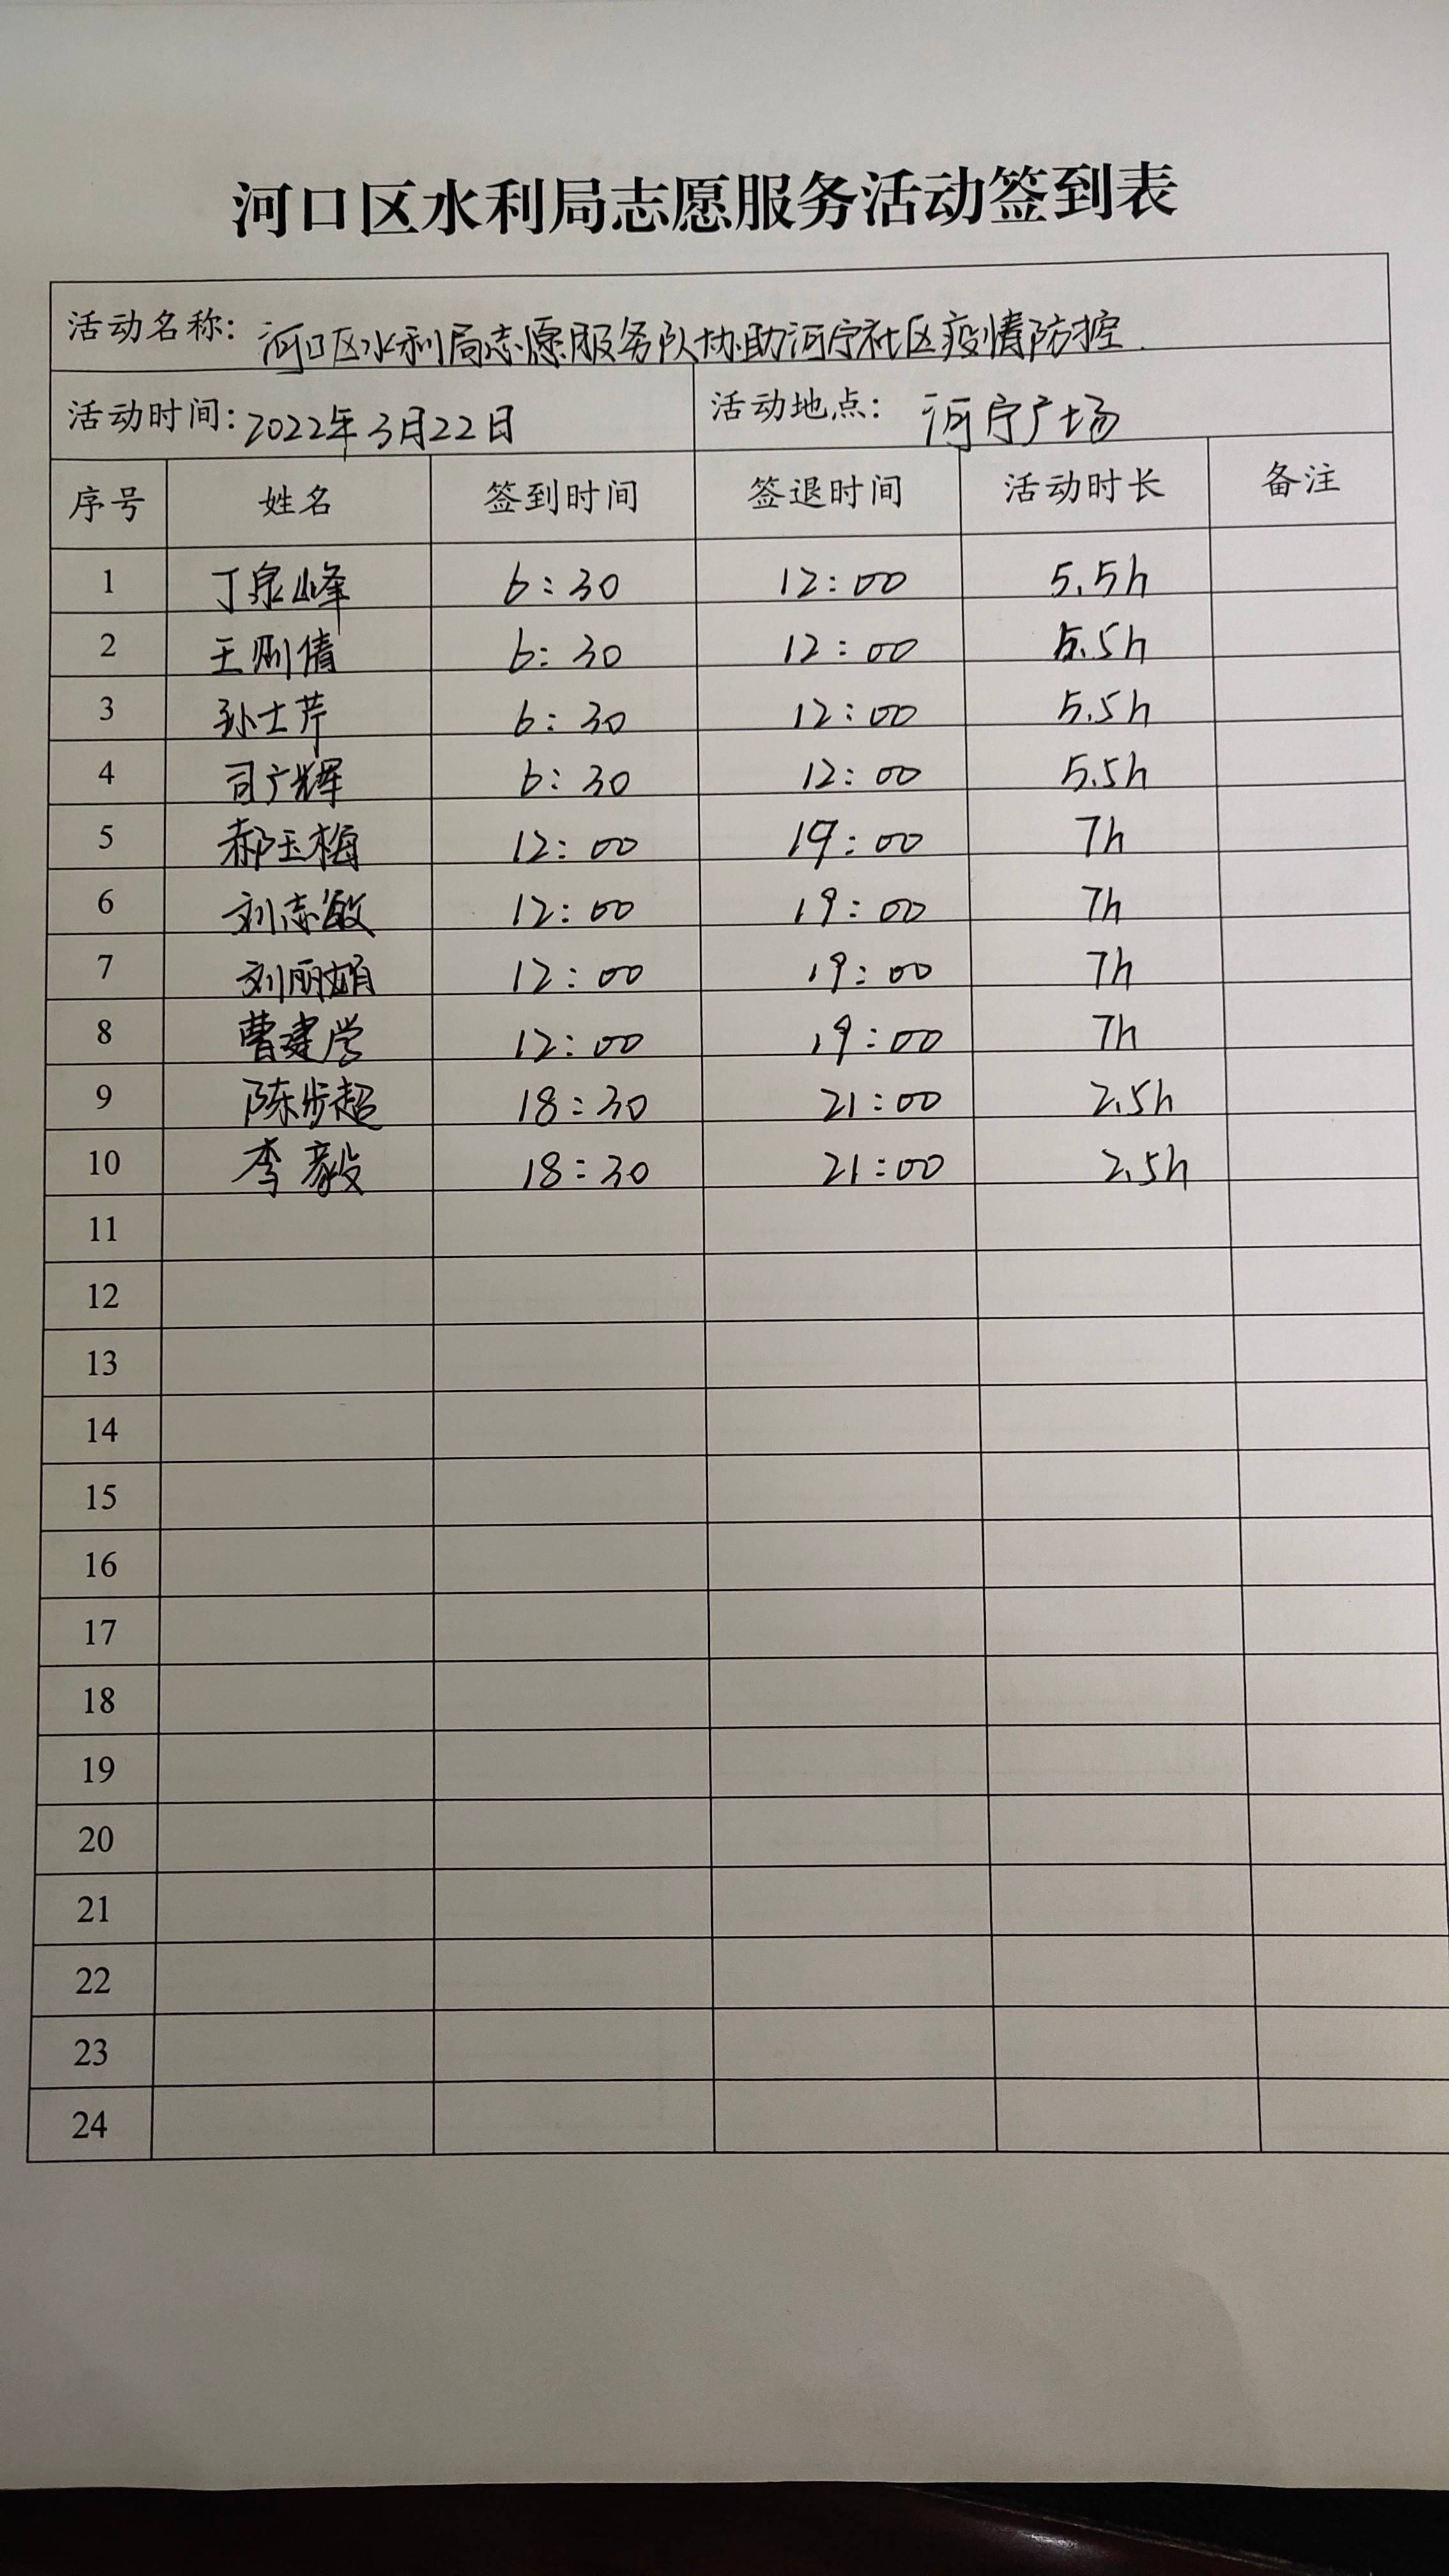 河口区水利局志愿服务活动签到表
活动名称: 河口区水利局志愿服务队协助河宁社区疫情防控.
活动时间: 2022年3月22日 活动地点: 河宁广场
序号 姓名 签到时间 签退时间 活动时长 备注
1 丁泉峰 6:30 12:00 5.5h
2 王刚倩 6:30 12:00 5.5h
3 孙士芹 6:30 12:00 5.5h
4 司广辉 6:30 12:00 5.5h
5 郝玉梅 12:00 19:00 7h
6 刘志敏 12:00 19:00 7h
7 刘丽娟 12:00 19:00 7h
8 曹建学 12:00 19:00 7h
9 陈步超 18:30 21:00 2.5h
10 李毅 18:30 21:00 2.5h
11
12
13
14
15
16
17
18
19
20
21
22
23
24